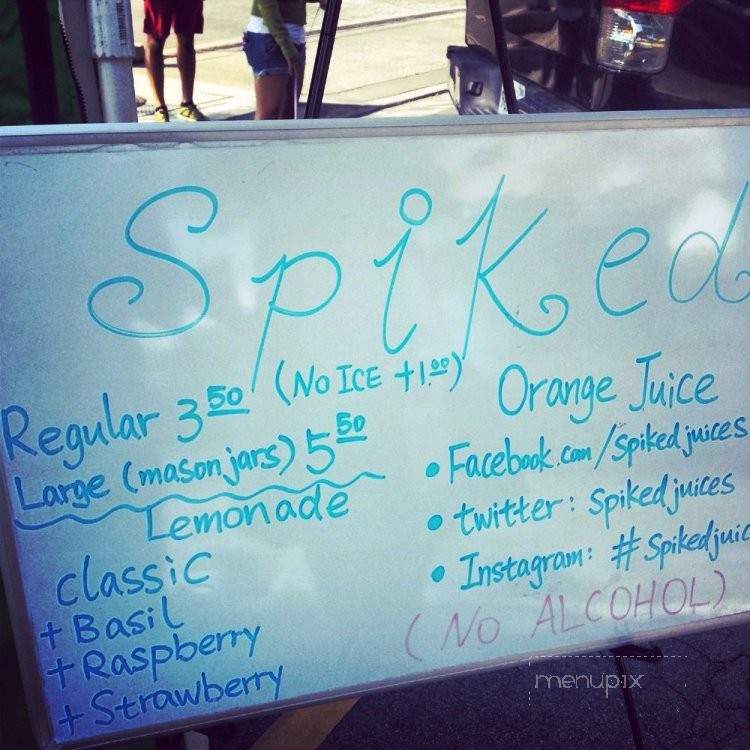 Spiked
Regular 3.50 (No ICE +1.00)
Large (mason jars) 5.50
Lemonade
classic
+ Basil
+ Raspberry
+ Strawberry
Orange Juice
• Facebook.com/spikedjuices
• twitter: spikedjuices
• Instagram: #spikedjuic
(NO ALCOHOL)
menupix